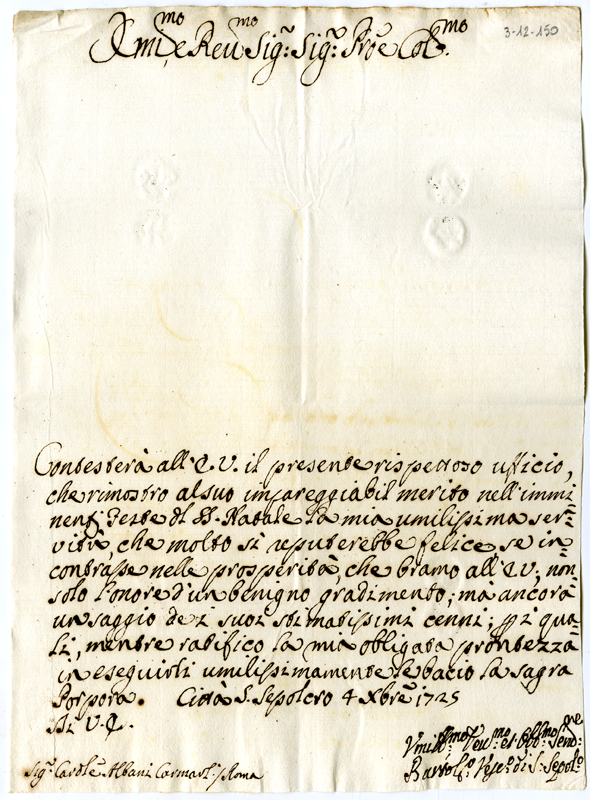 Em.mo e Reu.mo Sig.r Sig.r Prõe Col.mo
3-12-150
Contesterà all'E.V. il presente rispettoso ufficio,
che rimostro al suo impareggiabil merito nell'immi
nenti Feste del SS. Natale la mia umilissima ser=
vitù, che molto si reputerebbe felice, se in=
contrasse nelle prosperità, che bramo all'E.V., non
solo l'onore d'un benigno gradimento; mà ancora
un saggio de i suoi stimatissimi cenni; p i qua=
li, mentre ratifico la mia obligata prontezza
in eseguirli umilissimamente le bacio la sagra
Porpora. Città S. Sepolcro 4 Xbre 1725
Di V.E.
Vmiliss.mo Deu.mo et Obl.mo Seru.
Bartol.o Vesc.o di S. Sepol.o
Sig.r Card.le Albani Camarl. / Roma